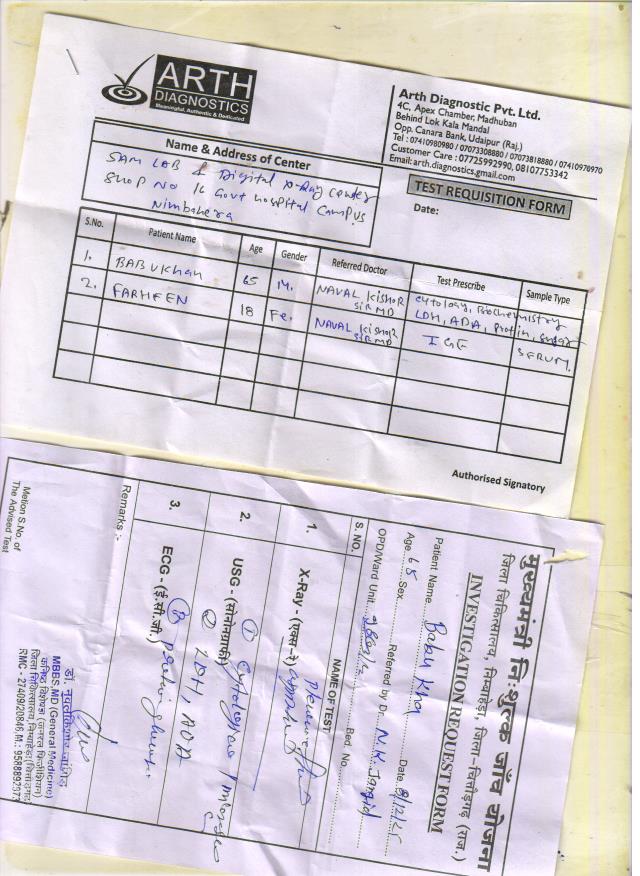 ARTH
DIAGNOSTICS
Meaningful, Authentic & Dedicated
Arth Diagnostic Pvt. Ltd.
4C, Apex Chamber, Madhuban
Behind Lok Kala Mandal
Opp. Canara Bank, Udaipur (Raj.)
Tel : 07410980980 / 07073308880 / 07073818880 / 07410970970
Customer Care : 07725992990, 08107753342
Email: arth.diagnostics.gmail.com
Name & Address of Center
SAM LAB & Digital X-Ray Center
SHOP NO 16 Govt Hospital Campus
Nimbahera
TEST REQUISITION FORM
Date:
S.No. Patient Name Age Gender Referred Doctor Test Prescribe Sample Type
1. BABU Khan 65 M. NAVAL Kishor SIR MD Cytology, Biochemistry LDH, ADA, Protin, Sugar
2. FARHEEN 18 Fe. NAVAL Kishor SIR MD IGE SERUM.
Authorised Signatory
मुख्यमंत्री निःशुल्क जाँच योजना
जिला चिकित्सालय, निम्बाहेड़ा, जिला-चित्तौड़गढ़ (राज.)
INVESTIGATION REQUEST FORM
Patient Name Babu Khan Date
Age 65 Sex Referred by Dr. N.K. Jangid
OPD/Ward Unit Bed. No.
S. NO. NAME OF TEST
1. X-Ray - (एक्स-रे)
2. USG - (सोनोग्राफी) ①
② LDH, ADA
3. ECG - (ई.सी.जी.) ③
Remarks :-
Metion S.No. of
The Advised Test
MBBS,MD (General Medicine)